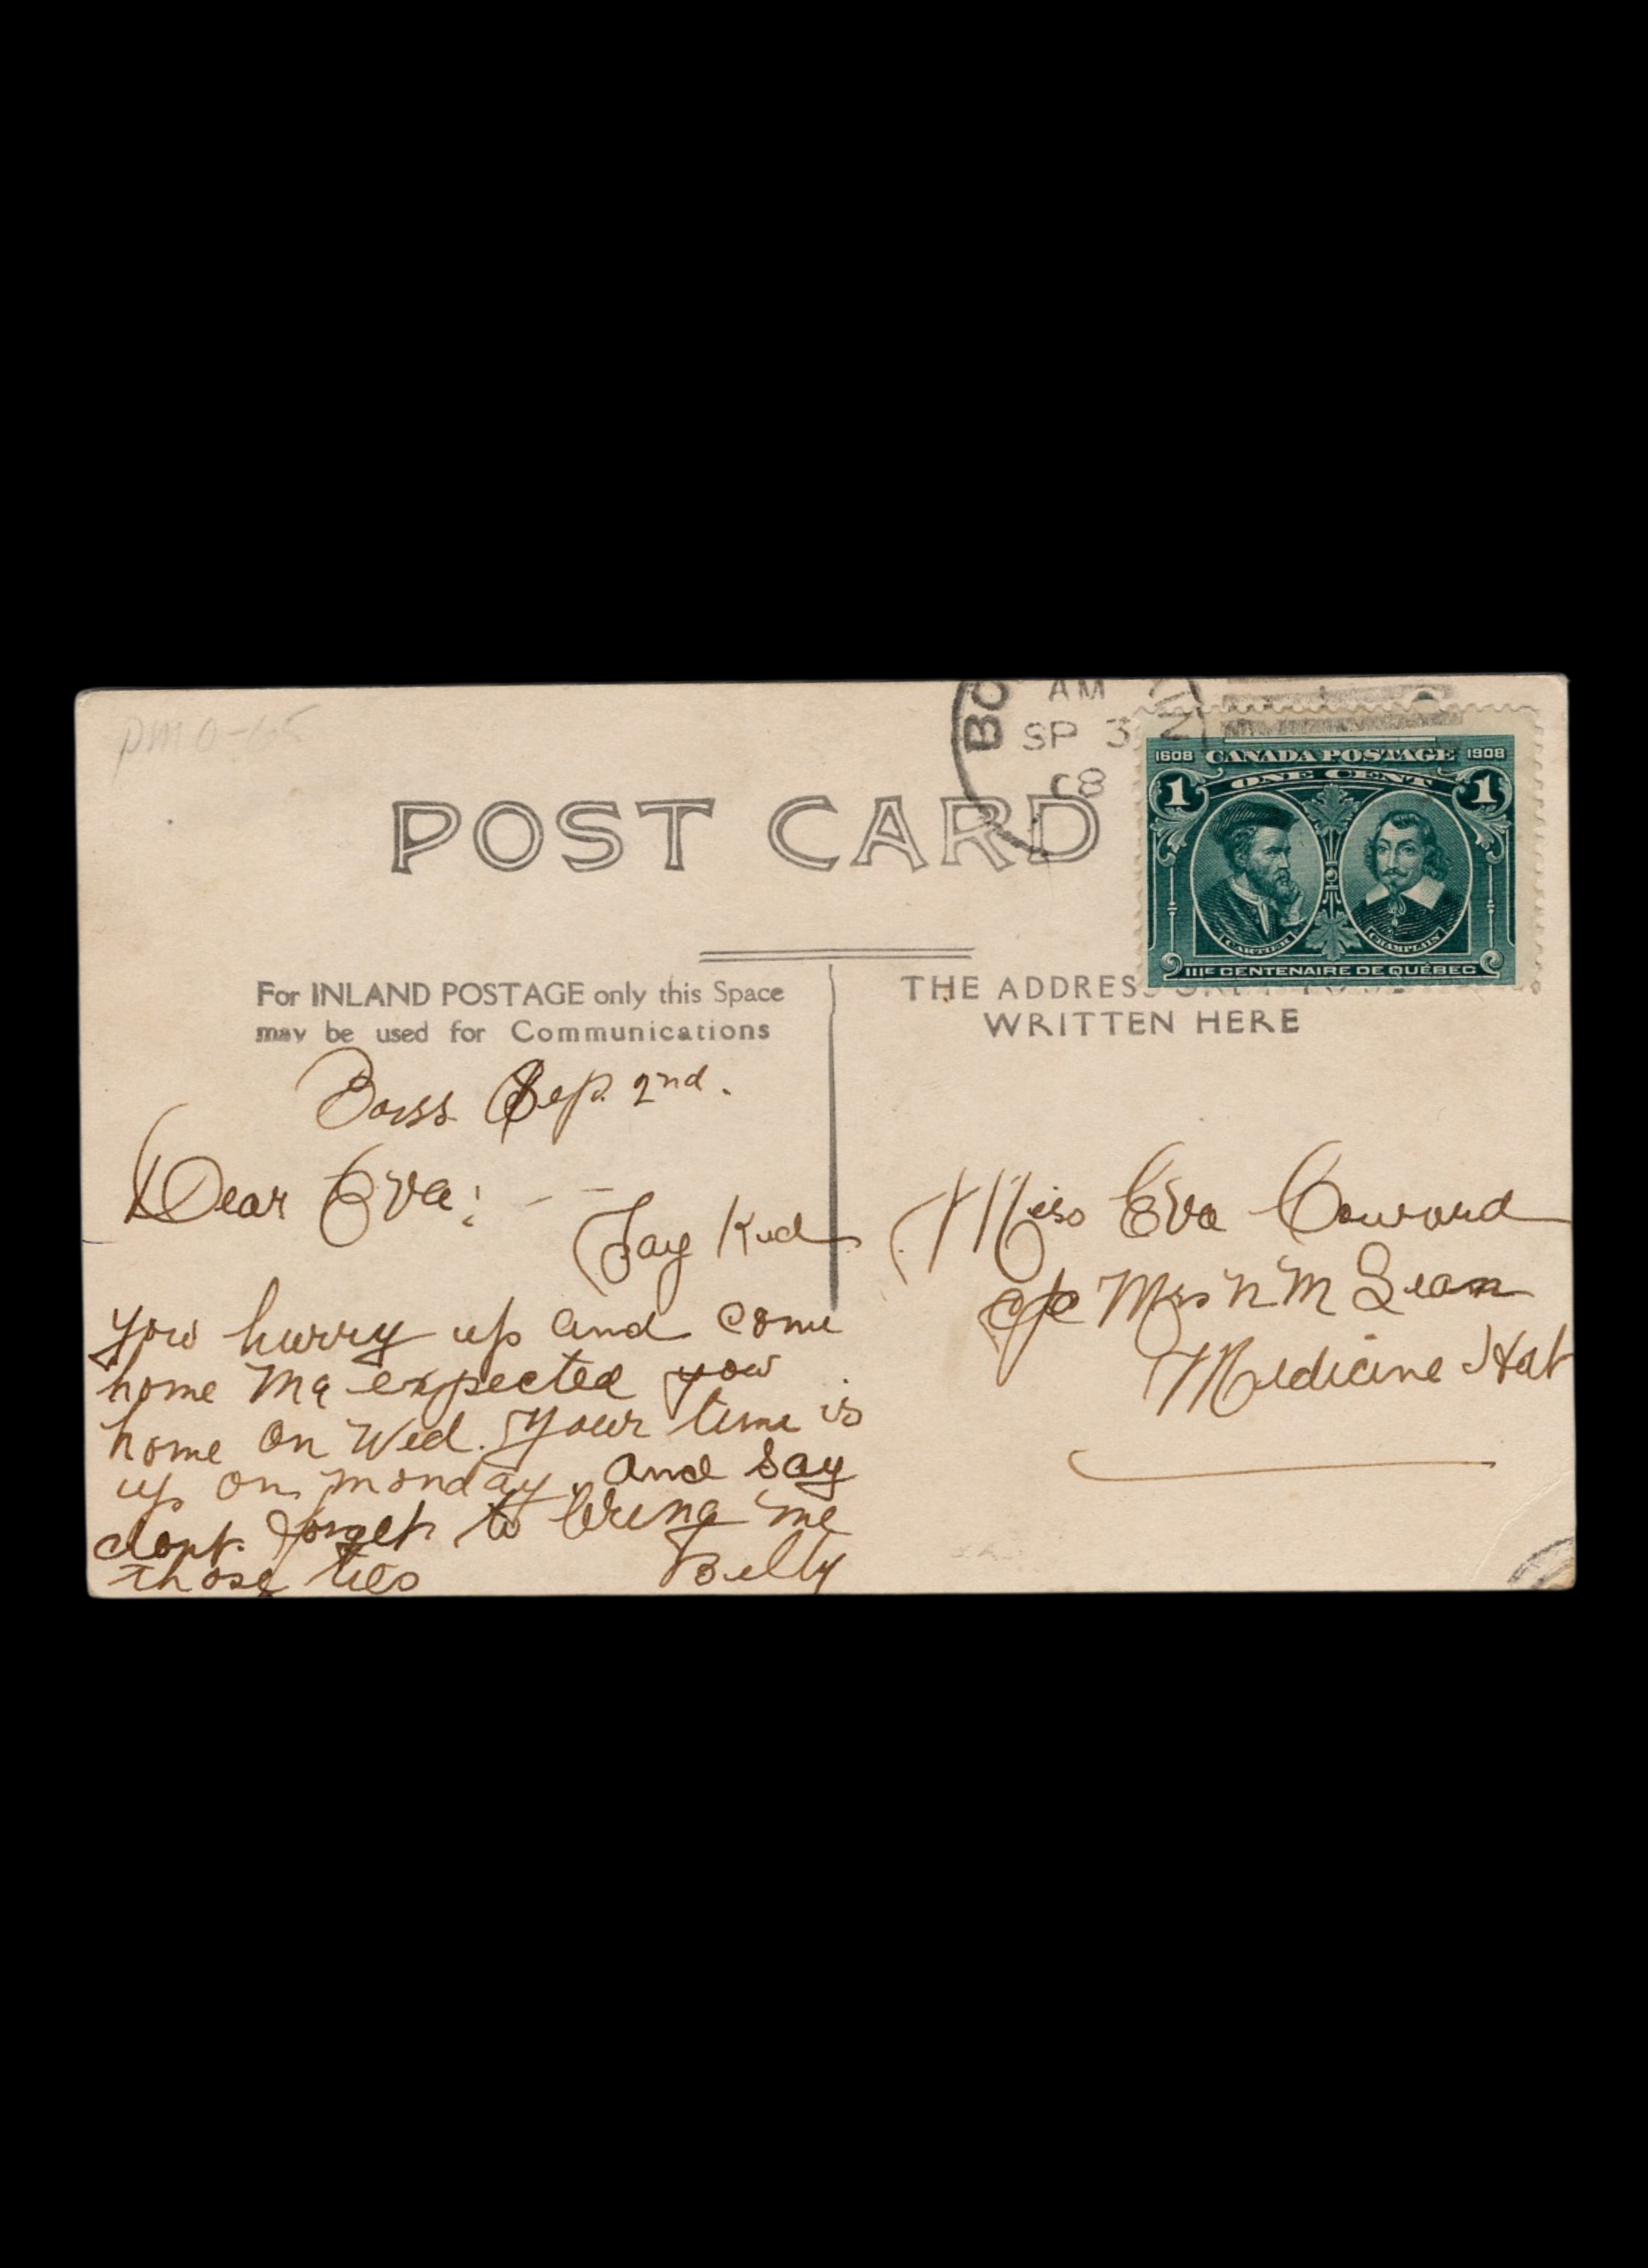 PMO-105
BO
AM
SP 3
08
POST CARD
1608 CANADA POSTAGE 1908
1 ONE CENT 1
CARTIER CHAMPLAIN
IIIE CENTENAIRE DE QUÉBEC
For INLAND POSTAGE only this Space
may be used for Communications
THE ADDRESS
WRITTEN HERE
Boiss Sep. 2nd.
Dear Eva: - -
Say Kid
you hurry up and come
home Ma expected you
home on Wed. Your time is
up on monday. and say
dont forget to bring me
those ties Billy
Miss Eva Coward
c/o Mrs N McLean
Medicine Hat